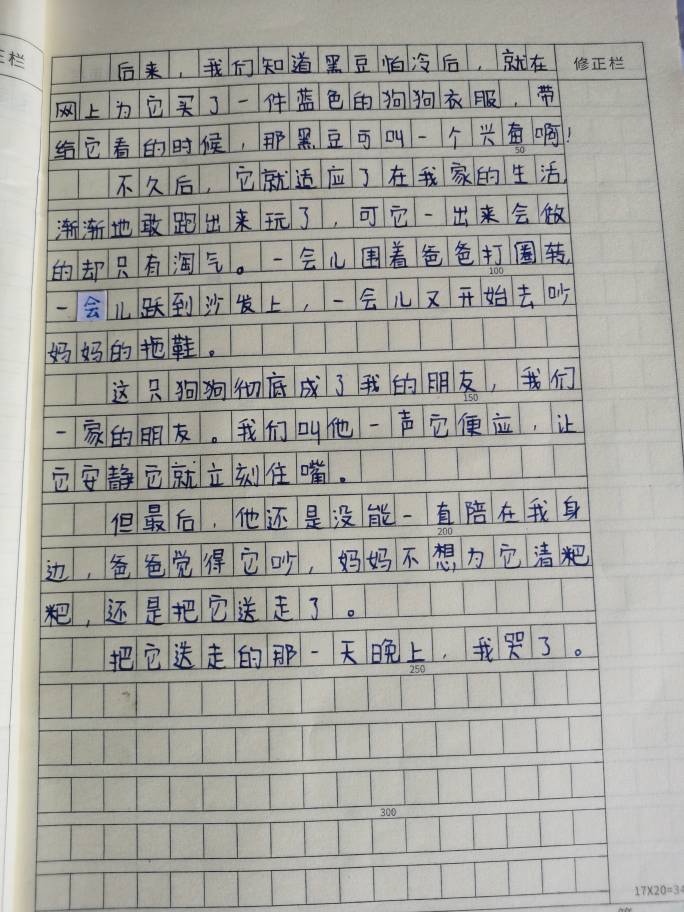 正栏
修正栏
后来，我们知道黑豆怕冷后，就在
网上为它买了一件蓝色的狗狗衣服，带
给它看的时候，那黑豆可叫一个兴奋啊！
50
不久后，它就适应了在我家的生活，
渐渐地敢跑出来玩了，可它一出来会做
的却只有淘气。一会儿围着爸爸打圈转，
100
一会儿跃到沙发上，一会儿又开始去吵
妈妈的拖鞋。
这只狗狗彻底成了我的朋友，我们
150
一家的朋友。我们叫他一声它便应，让
它安静它就立刻住嘴。
但最后，他还是没能一直陪在我身
200
边，爸爸觉得它吵，妈妈不想为它清粑
粑，还是把它送走了。
把它送走的那一天晚上，我哭了。
250
300
17X20=34